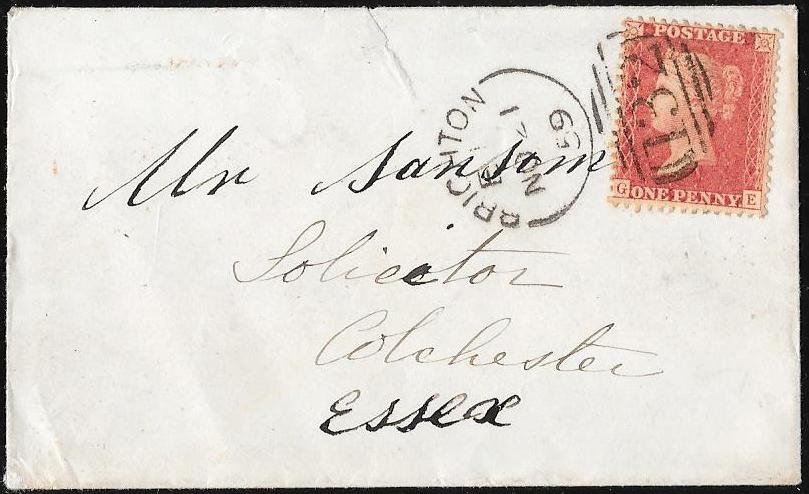 POSTAGE
G ONE PENNY E
BRIGHTON
NO 21
59
Mr Sansom
Solicitor
Colchester
Essex